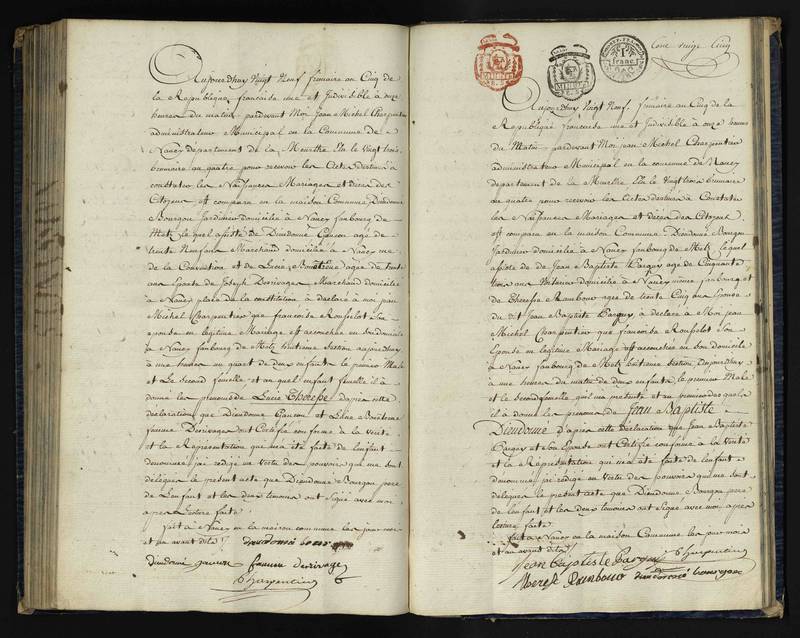 Aujourdhuy Vingt Neuf frimaire an Cinq de
la Republique francaise une et Indivisible à onze
heures du matin pardevant Moi Jean Michel Charpentier
administrateur Municipal en la Commune de
Nancy Departement de la Meurthe Elu le Vingt trois
brumaire an quatre pour recevoir les Actes destinés à
constater les Naissances Mariages et deces des
Citoyens est comparu en la maison Commune Dieudonné
Bourgon Jardinier domicilié à Nancy faubourg de
Metz, lequel assisté de Dieudonné agé de
trente Neuf ans Marchand domicilié à Nancy rue
de la Convention et de Lucie agée de trente
ans Epouse de Joseph Marchand domicilié
à Nancy place de la constitution à déclaré à moi Jean
Michel Charpentier que francoise Son
epouse en legitime Mariage est accouchée en Son domicile
à Nancy faubourg de Metz huitieme Section aujourdhuy
à une heure un quart de deux enfants le premier Male
et Le Second femelle, et au quel enfant femelle il à
donné les prénoms de Lucie Therese d'après cette
déclaration que Dieudonné et
femme ont Certifié conforme à la Verité
et la Représentation qui m'a été faite de l'enfant
denommé j'ai rédigé en Vertu des pouvoirs qui me Sont
délégués le présent acte que Dieudonné Bourgon pere
de L'enfant et les deux témoins ont Signé avec moi
apres Lecture faite
fait à Nancy en la maison commune les jour mois
et an avant dits
Charpentier
1
franc
Cent vingt Cinq
Aujourdhuy Vingt Neuf frimaire an Cinq de la
Republique francaise une et Indivisible à onze heures
du Matin pardevant Moi jean Michel Charpentier
administrateur Municipal en la commune de Nancy
departement de la Meurthe Elu le Vingt trois brumaire
an quatre pour recevoir les Actes destinés à Constater
les Naissances Mariages et deces des Citoyens
est comparu en la maison Commune Dieudonné Bourgon
Jardinier domicilié à Nancy faubourg de Metz lequel
assisté de Jean Baptiste agé de Cinquante
trois ans domicilié à Nancy même faubourg et
de Therese agée de trente Cinq ans Epouse
du dit Jean Baptiste à déclaré à Moi Jean
Michel Charpentier que francoise Son
Epouse en legitime Mariage est accouchée en Son domicile
à Nancy faubourg de Metz huitieme Section, aujourdhuy
à une heure du matin de deux enfants, le premier Male
et le Second femelle, qui m'a présenté et au premier des quels
il à donné les prenoms de Jean Baptiste
Dieudonné d'après cette déclaration que Jean Baptiste
et Son Epouse ont Certifié conforme à la Verité
et la Représentation qui m'a été faite de l'enfant
denommé j'ai rédigé en Vertu des pouvoirs qui me Sont
délégués le présent acte que Dieudonné Bourgon pere
de l'enfant et les deux temoins ont Signé avec moi après
lecture faite
fait à Nancy en la maison Commune les jour mois
et an avant dits
Jean Baptiste Charpentier